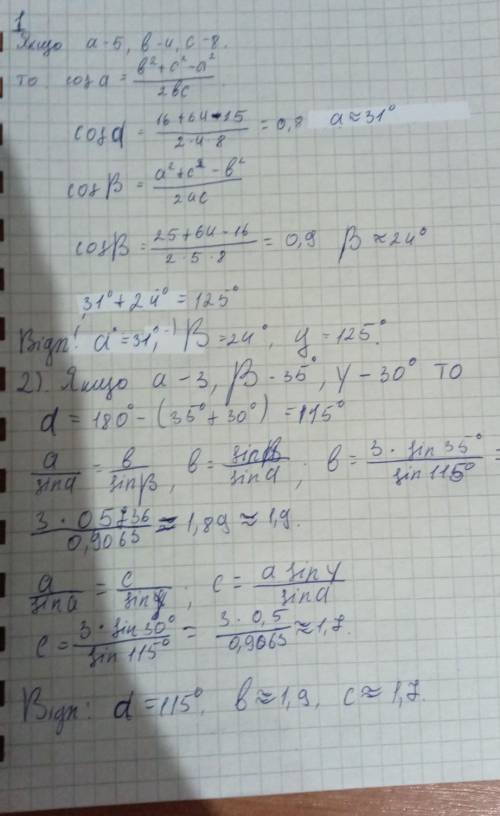 1
Якщо a-5, в-4, c-8.
то cos a = (в² + c² - a²) / 2вc
cos α = (16 + 64 - 25) / (2 · 4 · 8) = 0,8 a ≈ 31°
cos β = (a² + c² - в²) / 2ac
cos β = (25 + 64 - 16) / (2 · 5 · 8) = 0,9 β ≈ 24°
31° + 24° = 125°
Відп: α = 31°, β = 24°, γ = 125°.
2). Якщо a - 3, β - 35°, γ - 30° то
α = 180° - (35° + 30°) = 115°
a / sin α = в / sin β, в = sin β / sin α ; в = 3 · sin 35° / sin 115° =
3 · 0,5736 / 0,9063 ≈ 1,89 ≈ 1,9.
a / sin α = c / sin γ ; c = a sin γ / sin α
c = 3 · sin 30° / sin 115° = 3 · 0,5 / 0,9063 ≈ 1,7.
Відп: α = 115°, в ≈ 1,9, c ≈ 1,7.